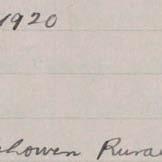 1920
howen Rura